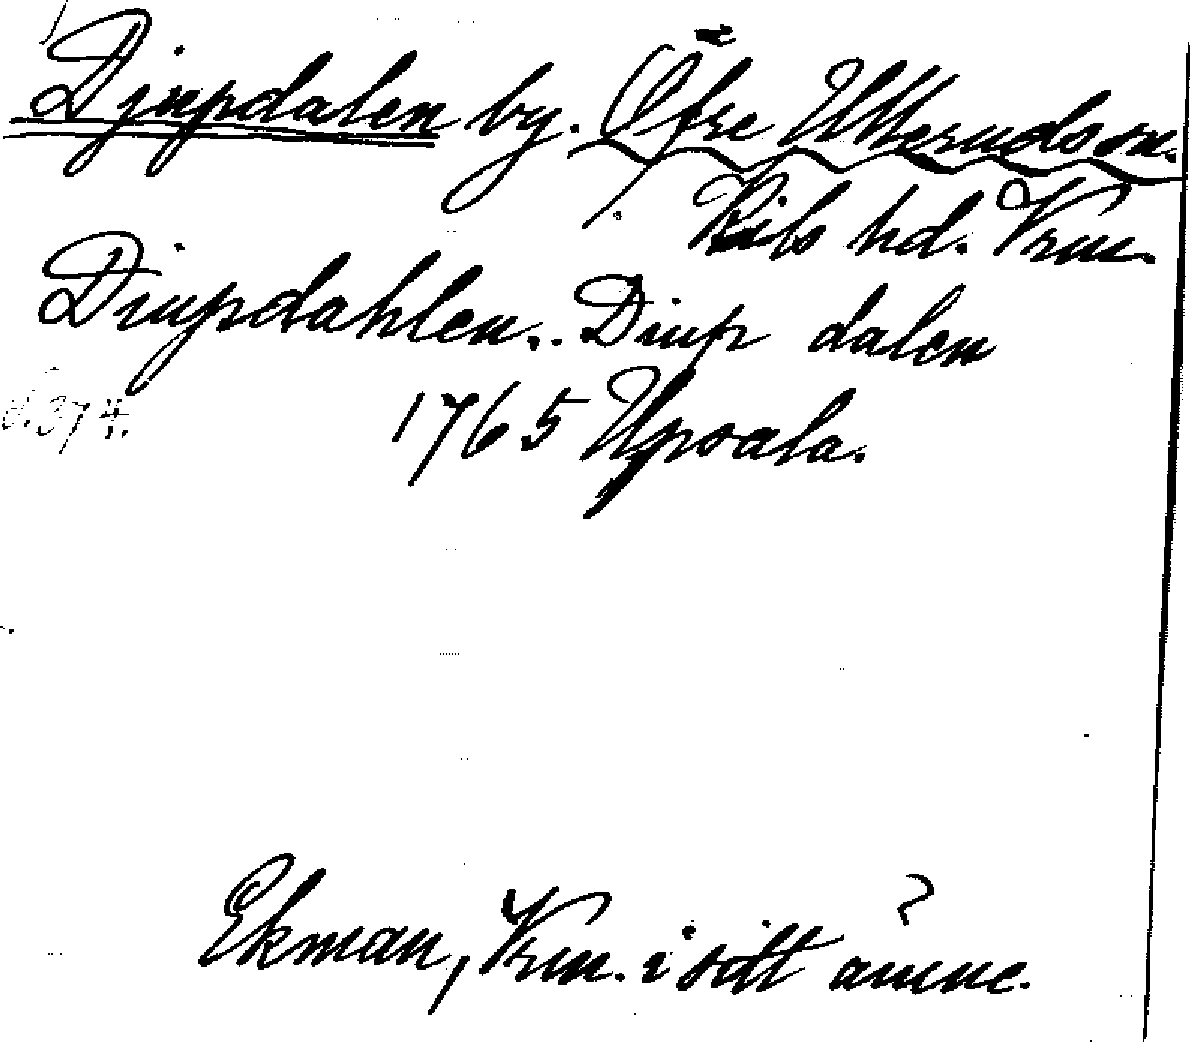 Djupdalen by. Öfre Ullerudssn.
Kils hd. Vrm.
Diupdahlen.. Diup dalen
d. 374. 1765 Upsala.
Ekman, Vrm. i sitt ämne.